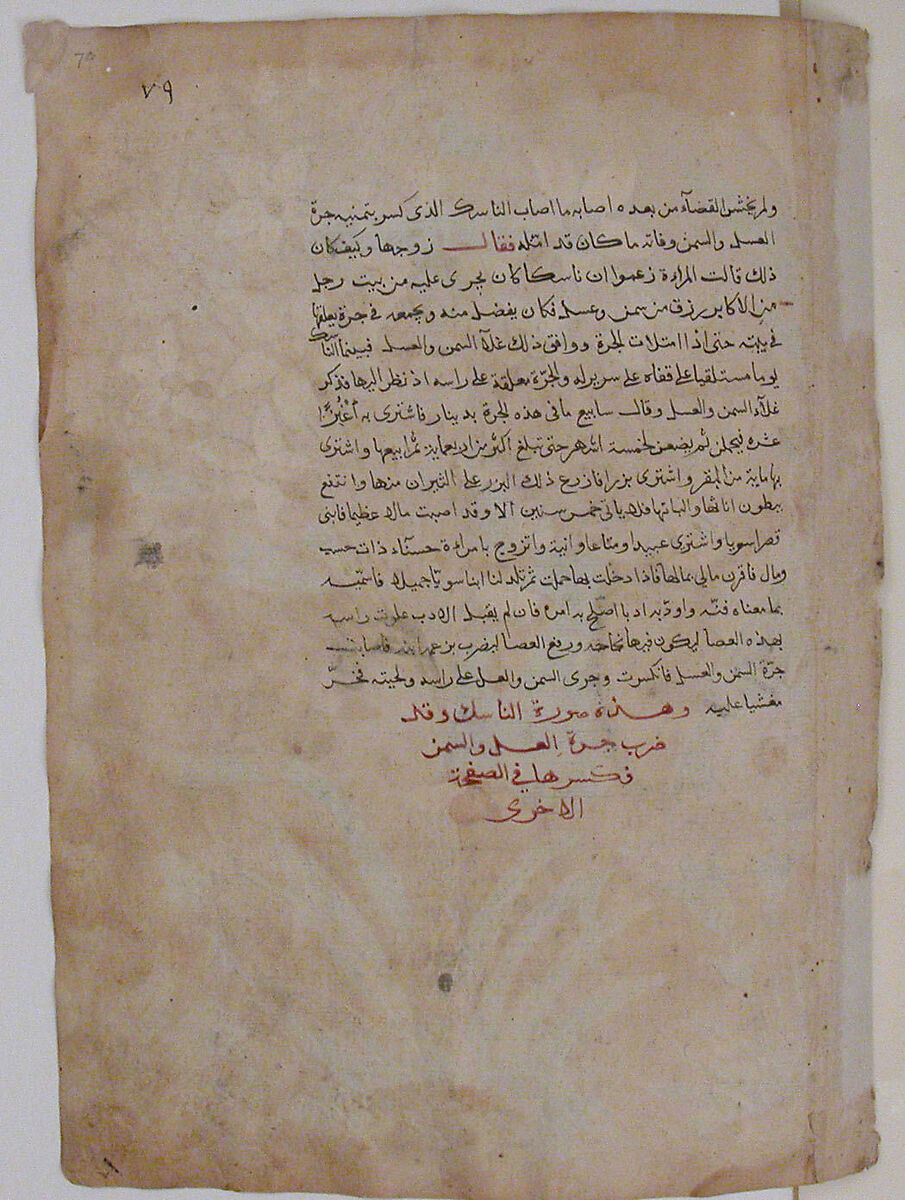 79
٧٩
ولم يخش القضآء من بعده اصابه ما اصاب الناسك الذى كسر بتمنيه جرة
العسل والسمن وفاته ما كان قد امله فقال زوجها وكيف كان
ذلك قالت المراءة زعموا ان ناسكا كان يجرى عليه من بيت رجل
من الاكابر رزق من سمن وعسل فكان يفضل منه ويجمعه فى جرة يعلقها
فى بيته حتى اذا امتلات الجرة ووافق ذلك غلآ السمن والعسل فبينما الناسك
يوما مستلقيا على قفاه على سرير له والجرّة معلقة على راسه اذ نظر اليها فذكر
غلآء السمن والعسل وقال سابيع ما فى هذه الجرة بدينار فاشترى به اعْنُزًا
عشره فيحملن ثم يضعن لخمسة اشهر حتى تبلغ اكثر من اربعماية ثم ابيعها واشترى
بها ماية من البقر واشترى بزرا فازرع ذلك البزر على الثيران منها وانتفع
ببطون اناثها والبانها فلا ياتى خمس سنين الا وقد اصبت مالا عظيما فابنى
قصرا سويا واشترى عبيدا ومتاعا وانية واتزوج بامراءة حسنآء ذات حسب
ومال فاقرن مالى بمالها فاذا دخلت بها حملت ثم تلد لنا ابنا سويّا جميلا فاسمّيه
بما معناه فنّه واودبه ادبا اصلح به امره فان لم يقبل الادب علوت راسه
بهذه العصا ليكون فيها ورفع العصا ليضرب بزعمه ابنه فاصابت
جرّة السمن والعسل فانكسرت وجرى السمن والعسل على راسه ولحيته فخرّ
مغشيا عليه وهذه صورة الناسك وقد
ضرب جرّة العسل والسمن
فكسرها فى الصفحة
الاخرى